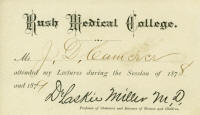 Rush Medical College.
Mr. J. D. 
attended my Lectures during the Session of 1878
and 1879
DeLaskie Miller M.D.
Professor of Obstetrics and Diseases of Women and Children.